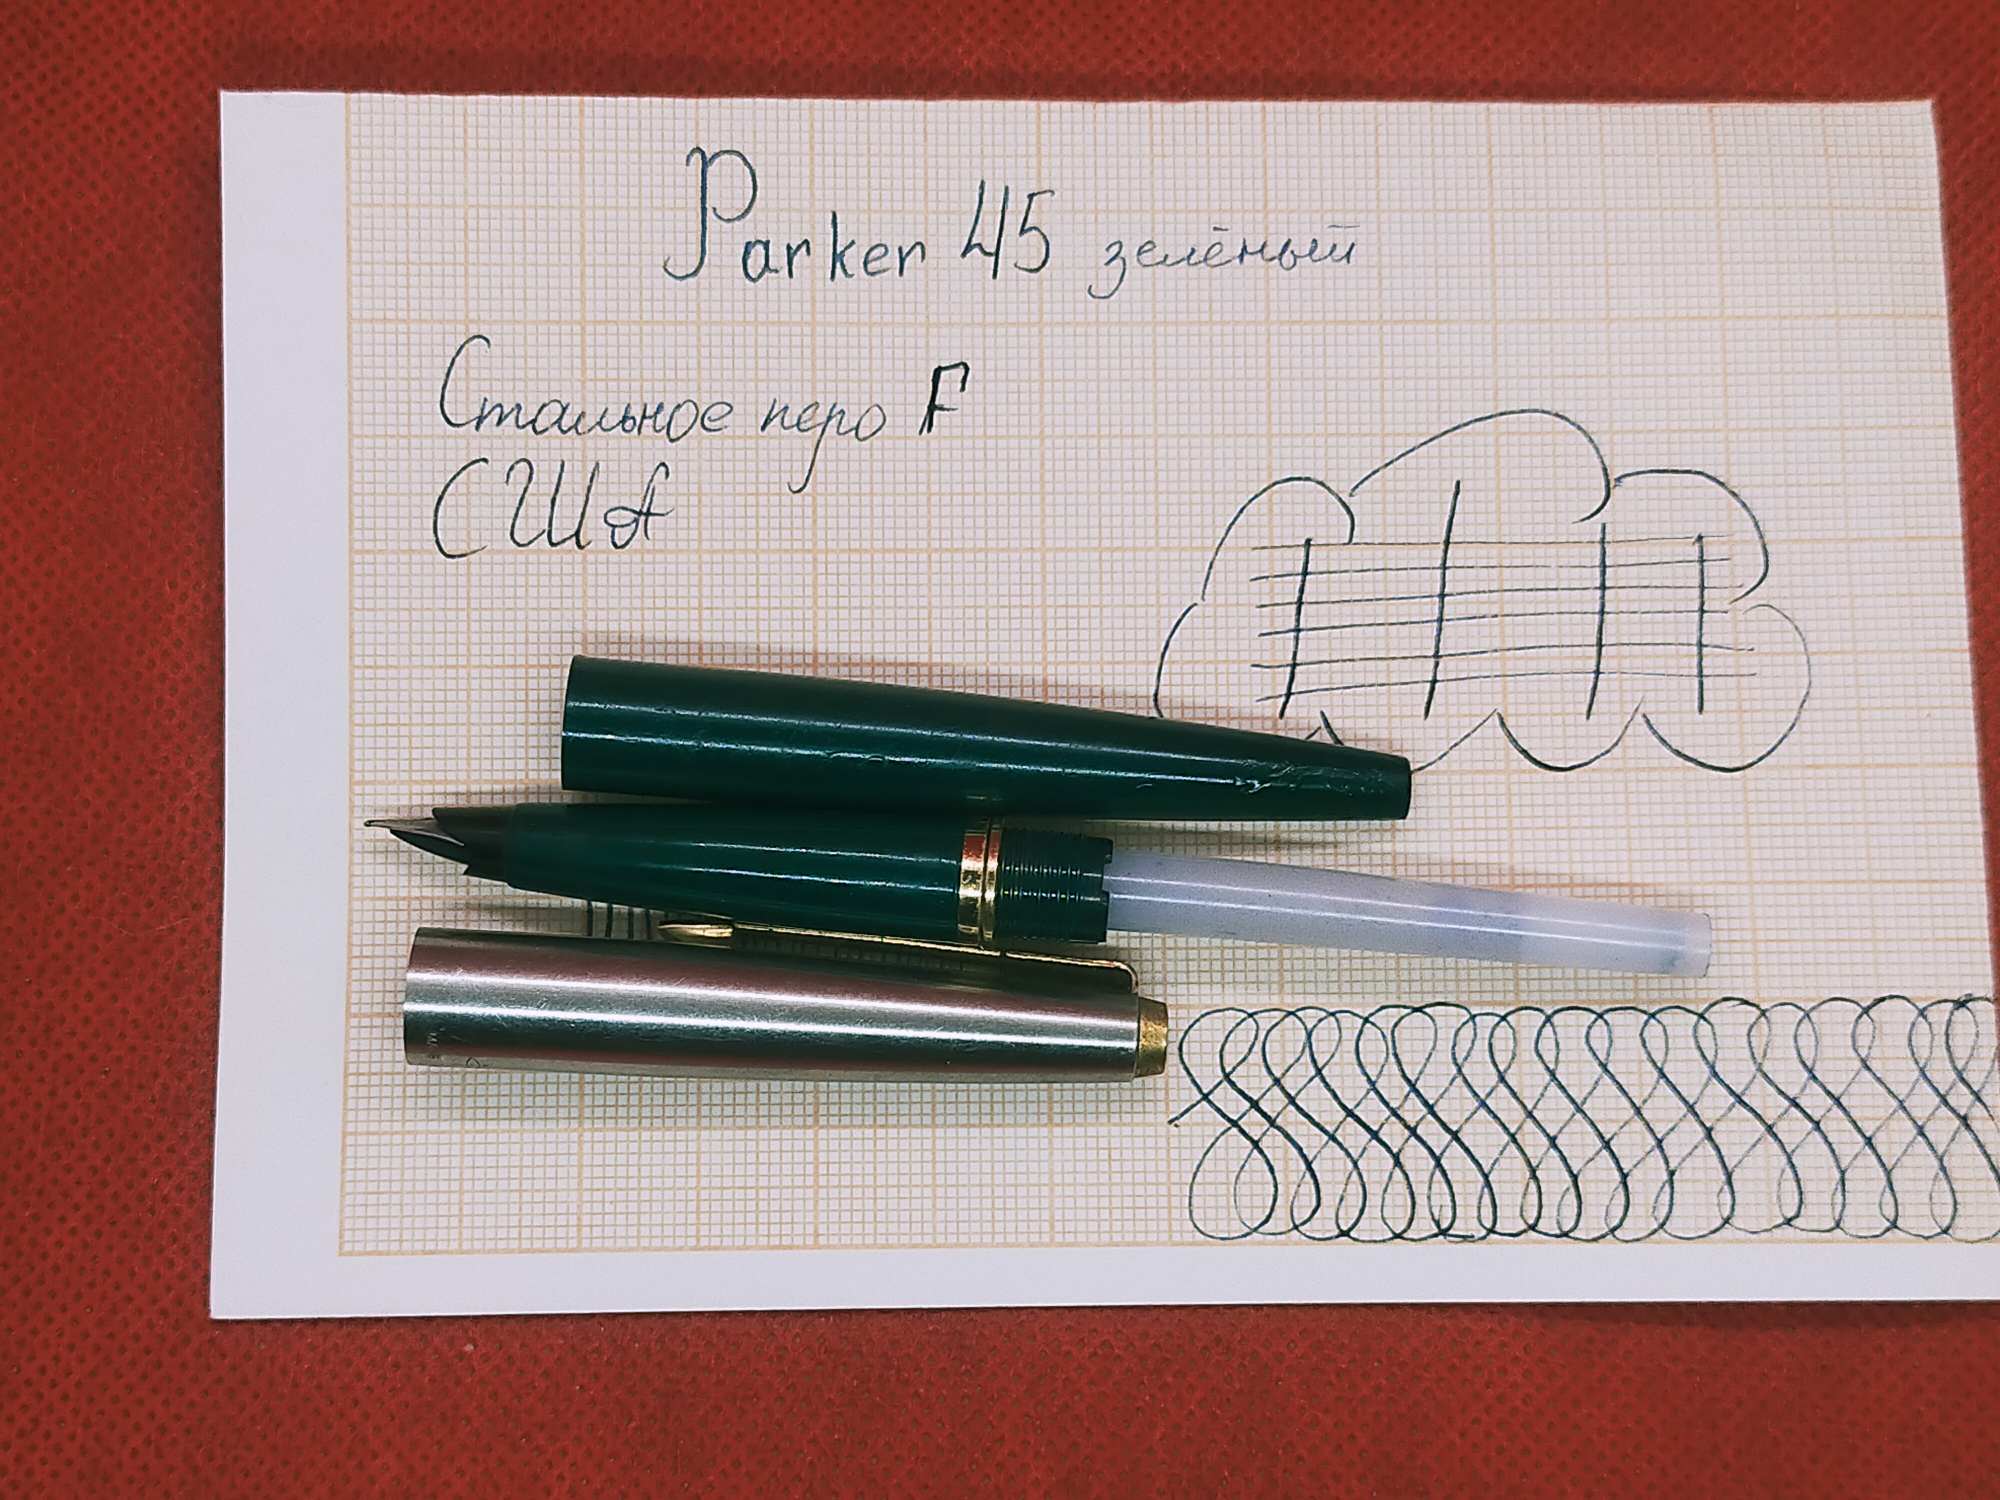 Parker 45 зелёный
Стальное перо F
США